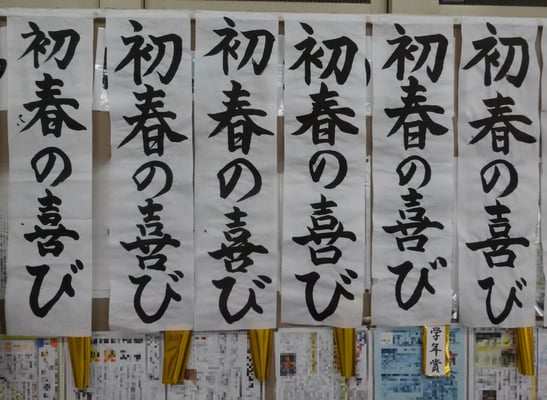 初春の喜び
初春の喜び
初春の喜び
初春の喜び
初春の喜び
初春の喜び
学年賞